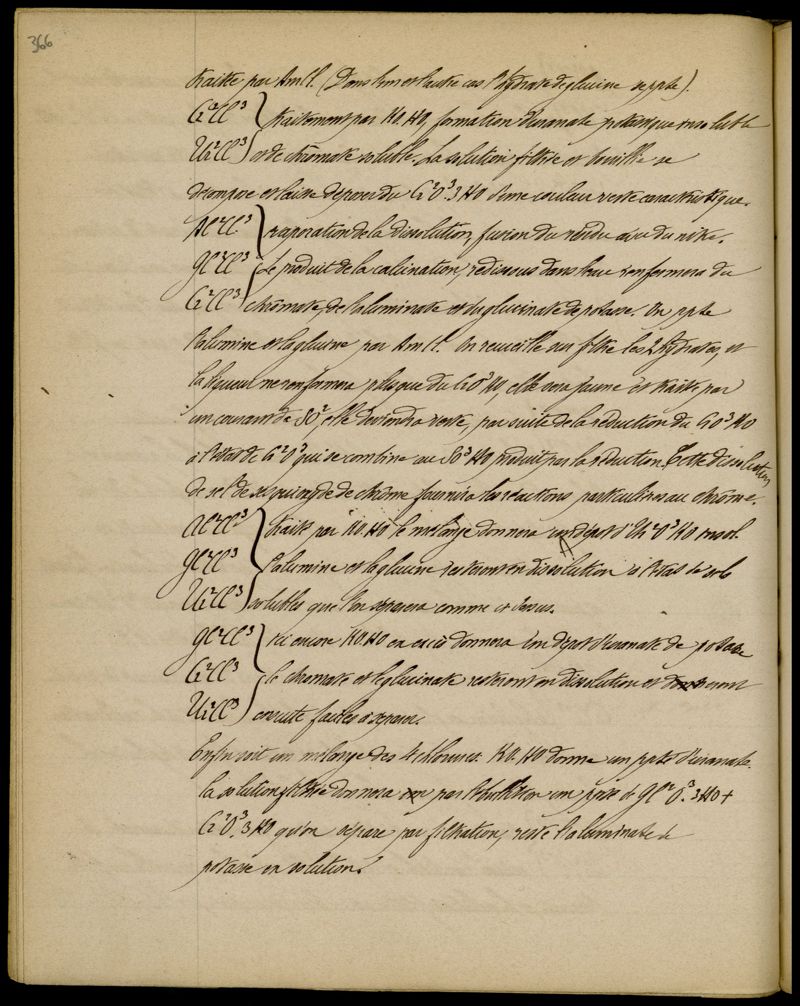 366
traitée par AmCl. (Dans l'un et l'autre cas l'hydrate de glucine se ppte).
Cr²Cl³ } traitement par KO.HO, formation d'uranate potassique insoluble
Ur²Cl³ } et de chromate soluble. La solution filtrée et bouillie se
décompose et laisse déposer du Cr²O³.3HO d'une couleur verte caractéristique.
Al²Cl³ } évaporation de la dissolution, fusion du résidu avec du nitre.
Gl²Cl³ } Le produit de la calcination, redissous dans l'eau renfermera du
Cr²Cl³ } chromate, de l'aluminate et du glucinate de potasse. On ppte
l'alumine et la glucine par AmCl. On recueille sur filtre les 2 hydrates, et
la liqueur ne renfermera plus que du CrO³HO, elle sera jaune et traitée par
un courant de SO², elle deviendra verte, par suite de la réduction du CrO³HO
à l'état de Cr²O³ qui se combine au SO³HO produit par la réduction. Cette dissolution
de sel de sesquioxyde de chrome fournira les réactions particulières au chrome.
Al²Cl³ } traité par KO.HO le mélange donnera un dépôt d'Ur²O³HO insol.
Gl²Cl³ } l'alumine et la glucine resteront en dissolution à l'état de sels
Ur²Cl³ } solubles que l'on séparera comme ci dessus.
Gl²Cl³ } Ici encore KO.HO en excès donnera un dépôt d'uranate de potasse
Cr²Cl³ } le chromate et le glucinate resteront en dissolution et seront
Ur²Cl³ } ensuite faciles à séparer.
Enfin soit un mélange des 4 chlorures. KO.HO donne un ppté d'uranate.
la solution filtrée donnera par l'ébullition un ppté de Gl²O³.3HO +
Cr²O³.3HO qu'on sépare par filtration, reste l'aluminate de
potasse en solution.